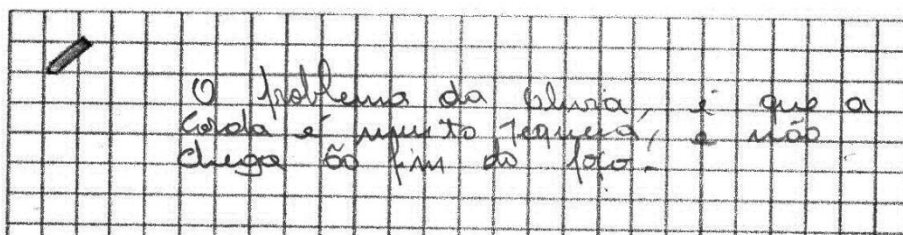 O problema da pluvia, é que a
corda é muito pequena, e não
chega ao fim do poço.